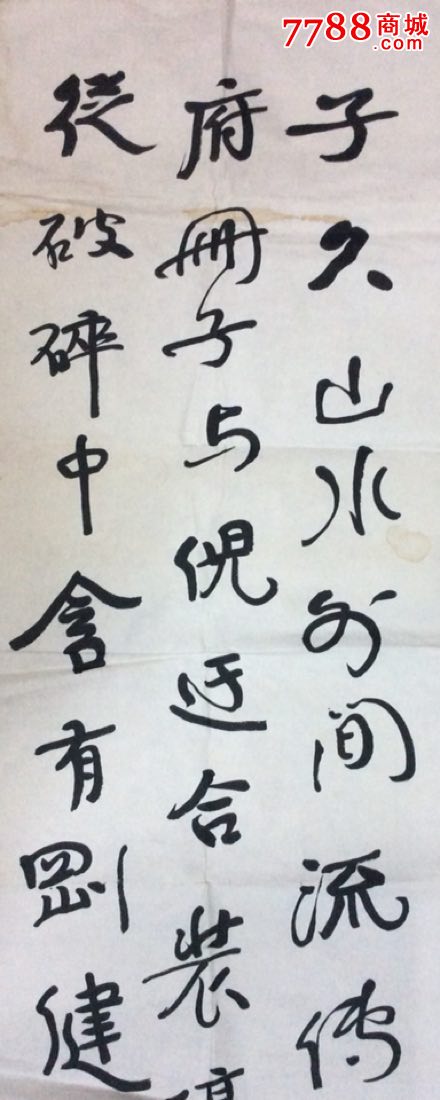 7788商城
.com
子久山水外间流传
府冊子与倪迂合装
從破碎中含有剛健